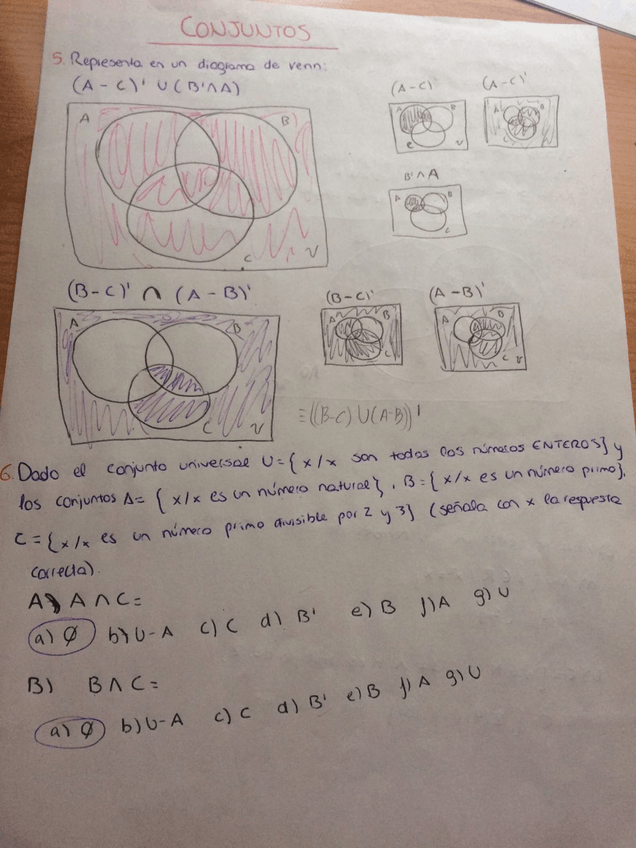 CONJUNTOS
5. Representa en un diagrama de venn:
(A - C)' ∪ (B'∩A)
(A-C)'
(A-C)'
A B C U
A B C U
A B C
B'∩A
A B C
(B-C)' ∩ (A-B)'
(B-C)'
(A-B)'
A B C U
A B C
A B C U
≡((B-C)∪(A-B))'
6. Dado el conjunto universal U={x/x son todos los números ENTEROS} y
los conjuntos A= {x/x es un número natural}, B={x/x es un número primo},
C={x/x es un número primo divisible por 2 y 3} (señala con x la respuesta
correcta).
A) A∩C=
a) Ø b) U-A c) C d) B' e) B f) A g) U
B) B∩C=
a) Ø b) U-A c) C d) B' e) B f) A g) U